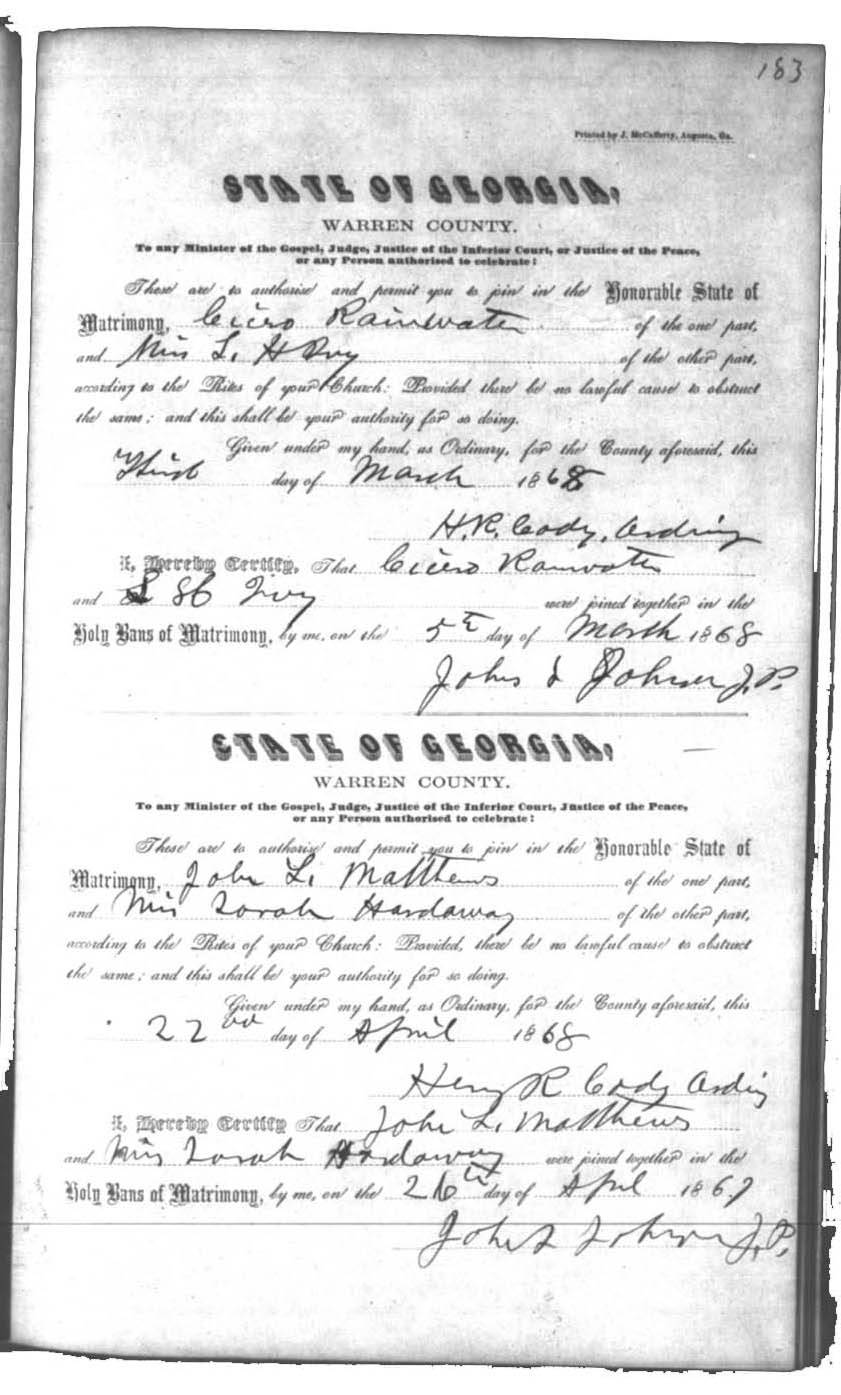 183
Printed by J. McCafferty, Augusta, Ga.
STATE OF GEORGIA,
WARREN COUNTY.
To any Minister of the Gospel, Judge, Justice of the Inferior Court, or Justice of the Peace,
or any Person authorised to celebrate:
These are to authorise and permit you to join in the Honorable State of
Matrimony, Cicero Rainwater of the one part,
and Miss L. H Ivy of the other part,
according to the Rites of your Church: Provided there be no lawful cause to obstruct
the same; and this shall be your authority for so doing.
Given under my hand, as Ordinary, for the County aforesaid, this
day of March 1868
H. R. Cody, Ordinary
I, Hereby Certify, That Cicero Rainwater
and Ivy were joined together in the
Holy Bans of Matrimony, by me, on the 5th day of March 1868
John J.P.
STATE OF GEORGIA,
WARREN COUNTY.
To any Minister of the Gospel, Judge, Justice of the Inferior Court, Justice of the Peace,
or any Person authorised to celebrate:
These are to authorise and permit you to join in the Honorable State of
Matrimony, John L. Matthews of the one part,
and Miss Sarah Hardaway of the other part,
according to the Rites of your Church: Provided, there be no lawful cause to obstruct
the same; and this shall be your authority for so doing.
Given under my hand, as Ordinary, for the County aforesaid, this
22nd day of April 1868
Henry R Cody Ordinary
I, Hereby Certify That John L. Matthews
and Miss Sarah Hardaway were joined together in the
Holy Bans of Matrimony, by me, on the 26th day of April 1867
John J.P.